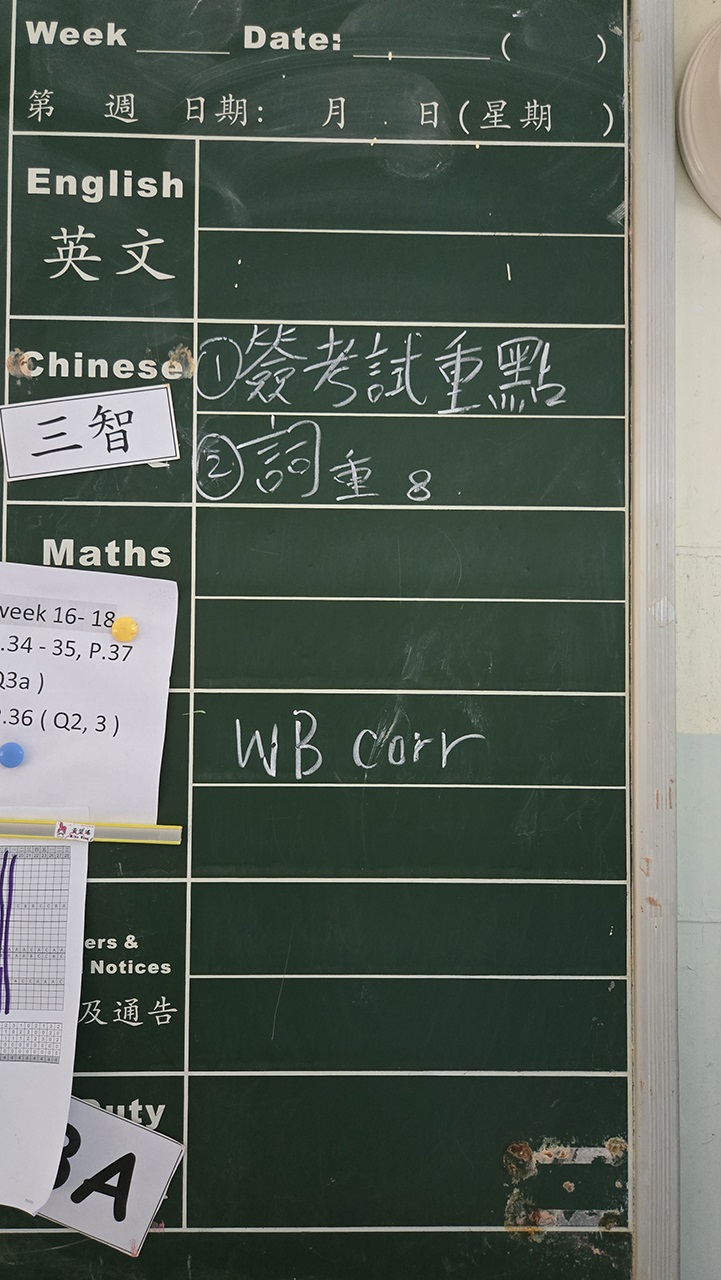 Week ____ Date: ________ ( )
第 週 日期: 月 日(星期 )
English
英文
Chinese
①簽考試重點
三智
②詞重 8
Maths
week 16- 18
.34 - 35, P.37
Q3a )
P.36 ( Q2, 3 )
WB corr
ers &
Notices
及通告
Duty
3A